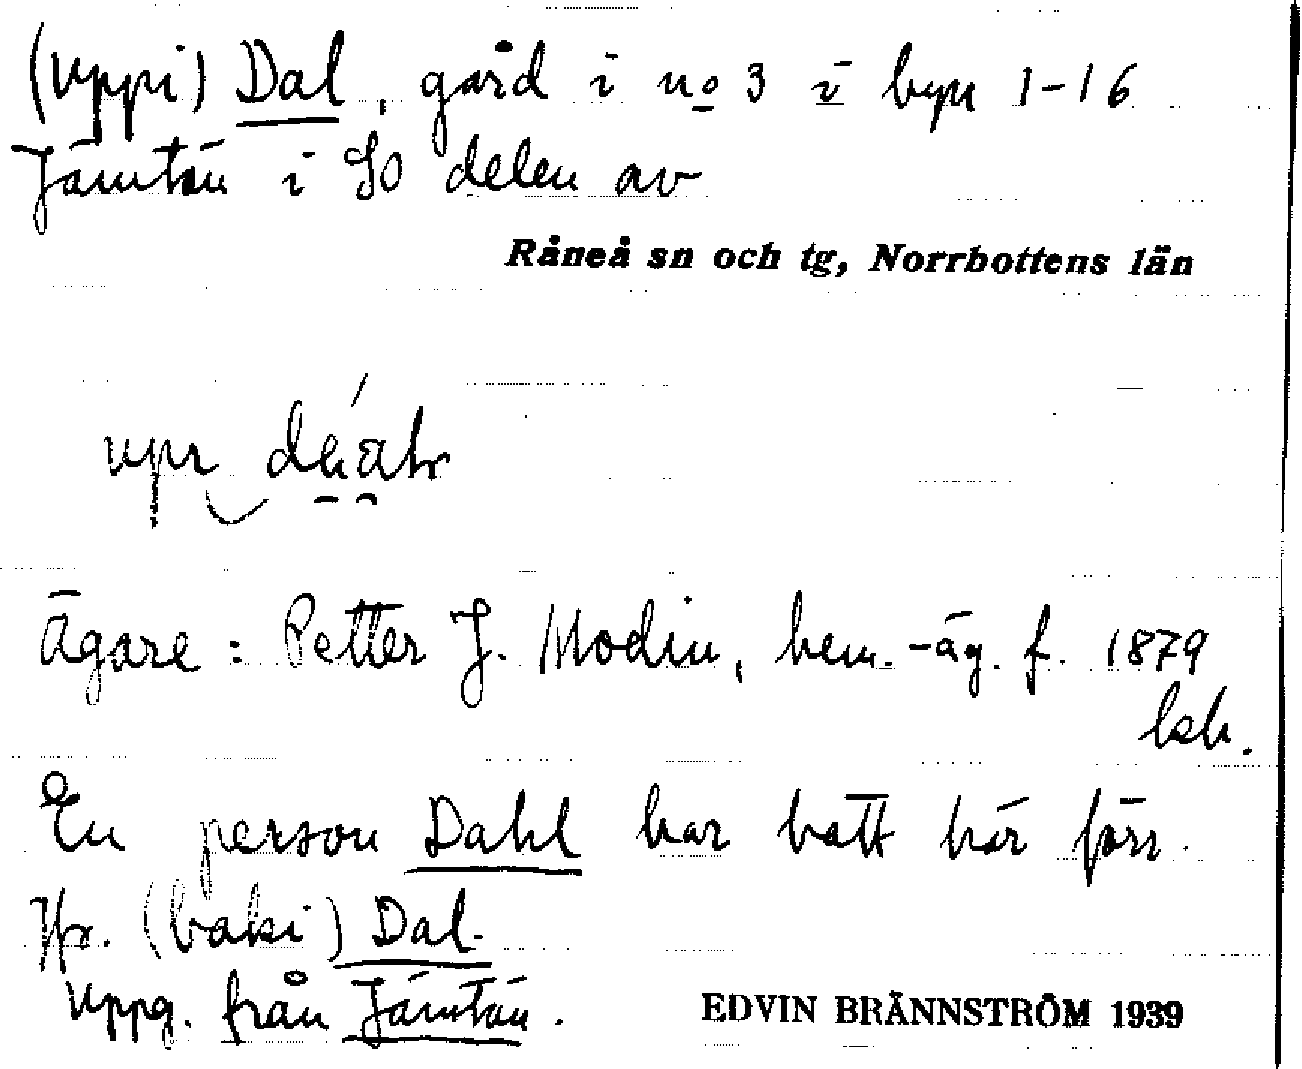 (uppi) Dal, gård i no 3 i byn 1-16
Jämtön i SO delen av
Råneå sn och tg, Norrbottens län
Ägare: Petter J. Modin, hem.-äg. f. 1879
En person Dahl har bott här förr.
Jfr. (baki) Dal.
Uppg. från Jämtön.
EDVIN BRÄNNSTRÖM 1939